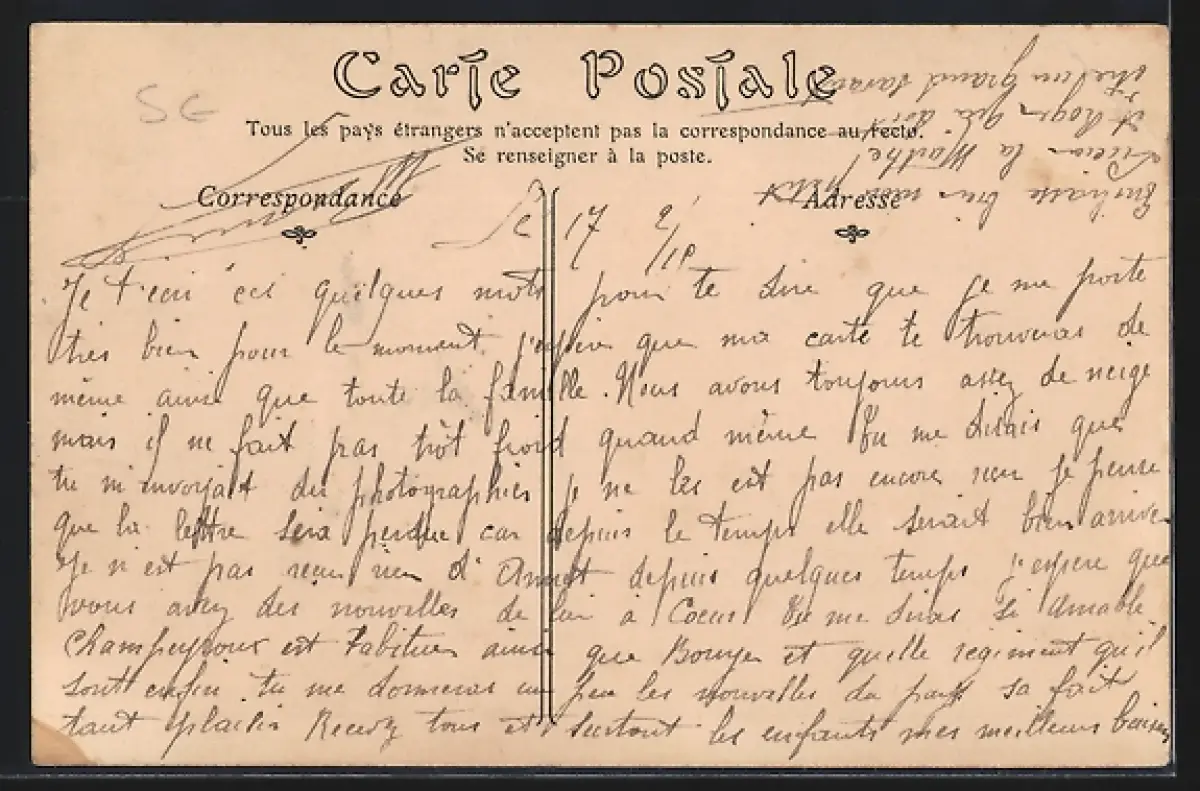 Carte Postale
Tous les pays étrangers n'acceptent pas la correspondance au recto.
Se renseigner à la poste.
SG
Correspondance
Adresse
Le 17 2/18
Je t'ecri ces quelques mots pour te dire que je me porte
très bien pour le moment j'espère que ma carte te trouveras de
même ainsi que toute la famille. Nous avons toujours assez de neige
mais il ne fait pas trôt froid quand même Tu me disais que
tu m'envoyait des photographies je ne les est pas encore reçu je pense
que la lettre sera perdue car depuis le temps elle serait bien arrivée
Je n'est pas reçu rien d' depuis quelques temps j'espère que
vous avez des nouvelles de lui à Coeur Tu me diras si Amable
Champeyroux est t'abituer ainsi que Bouyer et quelle regiment qu'il
sont enfin tu me donneras un peu les nouvelles du pays sa fait
tant plaisir Recevez tous et surtout les enfants mes meilleurs baisers
Embrasse bien mon
Lucien la Marthe
et Roger qui doit
être un grand savant